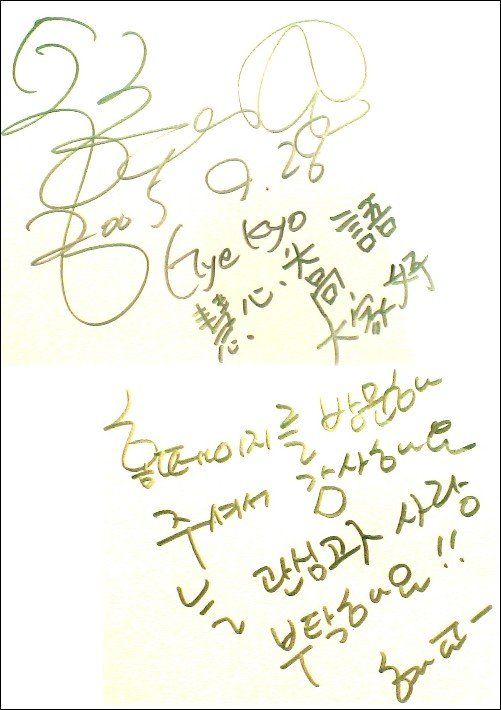 2005 9. 28
Hye kyo
慧心. 語
大家好
홈페이지를 방문해
주셔서 감사해요
늘 관심과 사랑
부탁해요!!
혜교-